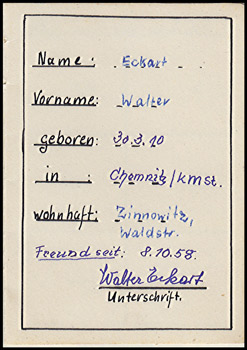 Name: Eckart
Vorname: Walter
geboren: 30.3.10
in : Chemnitz/Kmst.
wohnhaft: Zinnowitz,
Waldstr.
Freund seit: 8.10.58.
Walter Eckart
Unterschrift.